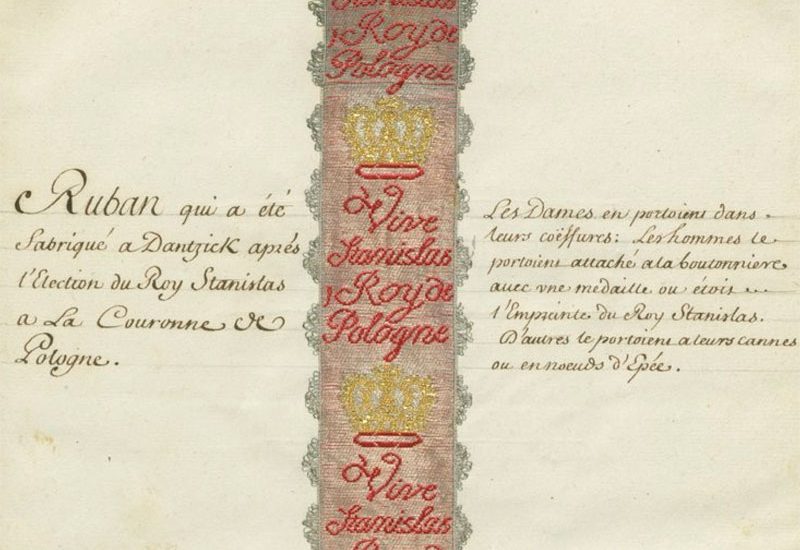 Stanislas
Roy de
Pologne
Vive
Stanislas
Roy de
Pologne
Vive
Stanislas
Ruban qui a été
fabriqué a Dantzick aprés
l'Election du Roy Stanislas
a La Couronne de
Pologne.
Les Dames en portoient dans
leurs coëffures: Les hommes le
portoient attaché a la boutonniere
avec vne médaille ou étoit
l'Empreinte du Roy Stanislas.
D'autres le portoient a leurs cannes
ou en noeuds d'Epée.